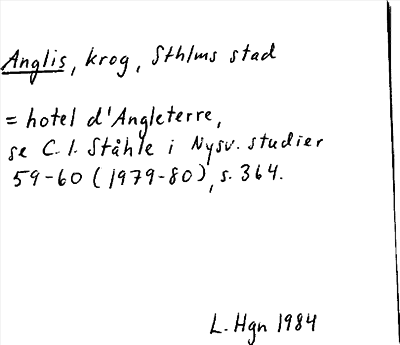 Anglis, krog, Sthlms stad
= hotel d'Angleterre,
se C.I. Ståhle i Nysv. studier
59-60 (1979-80), s. 364.
L. Hgn 1984